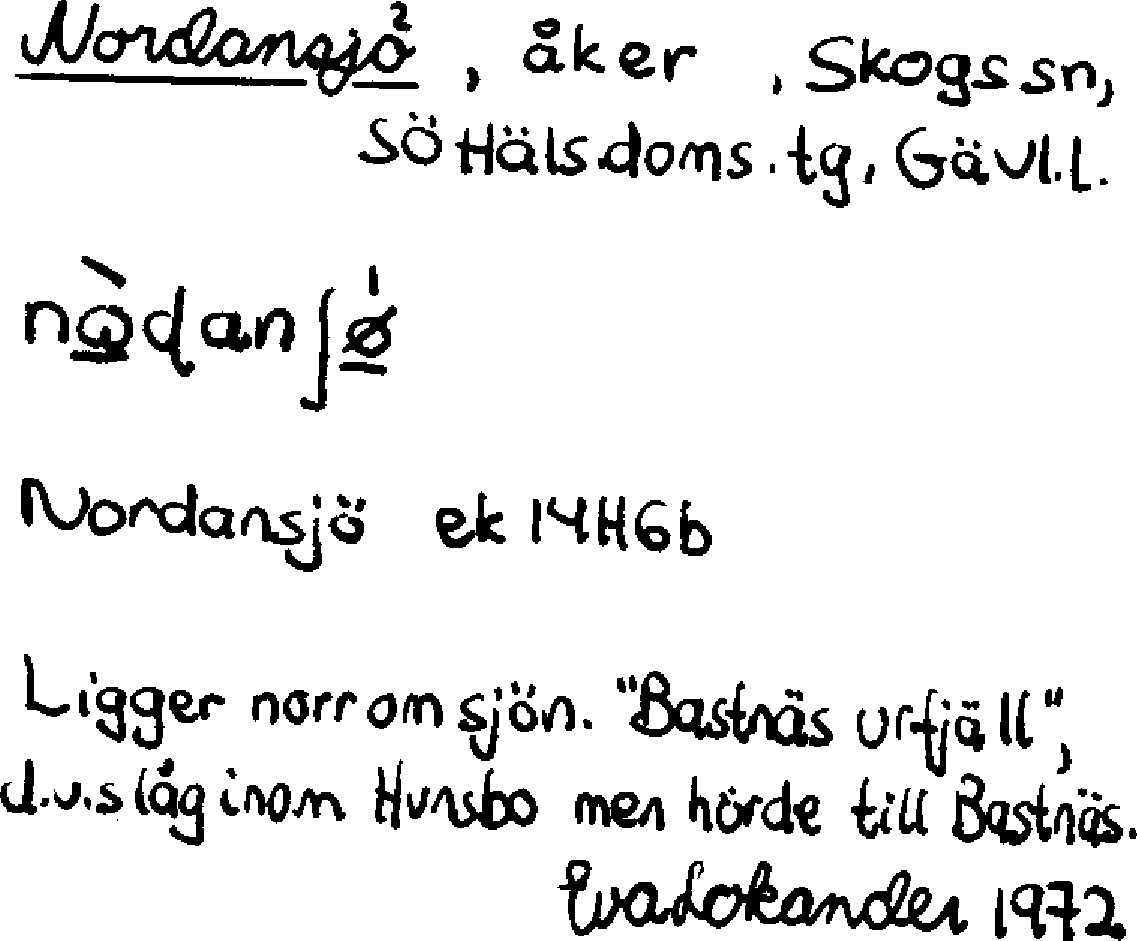 Nordansjö², åker, Skogs sn,
SÖ Hälsdoms.tg, Gävl.l.
nɷ̀danʃø̲̍
Nordansjö ek 14H6b
Ligger norr om sjön. "Bastnäs urfjäll",
d.v.s låg inom Hunsbo men hörde till Bastnäs.
Eva Lokander 1972